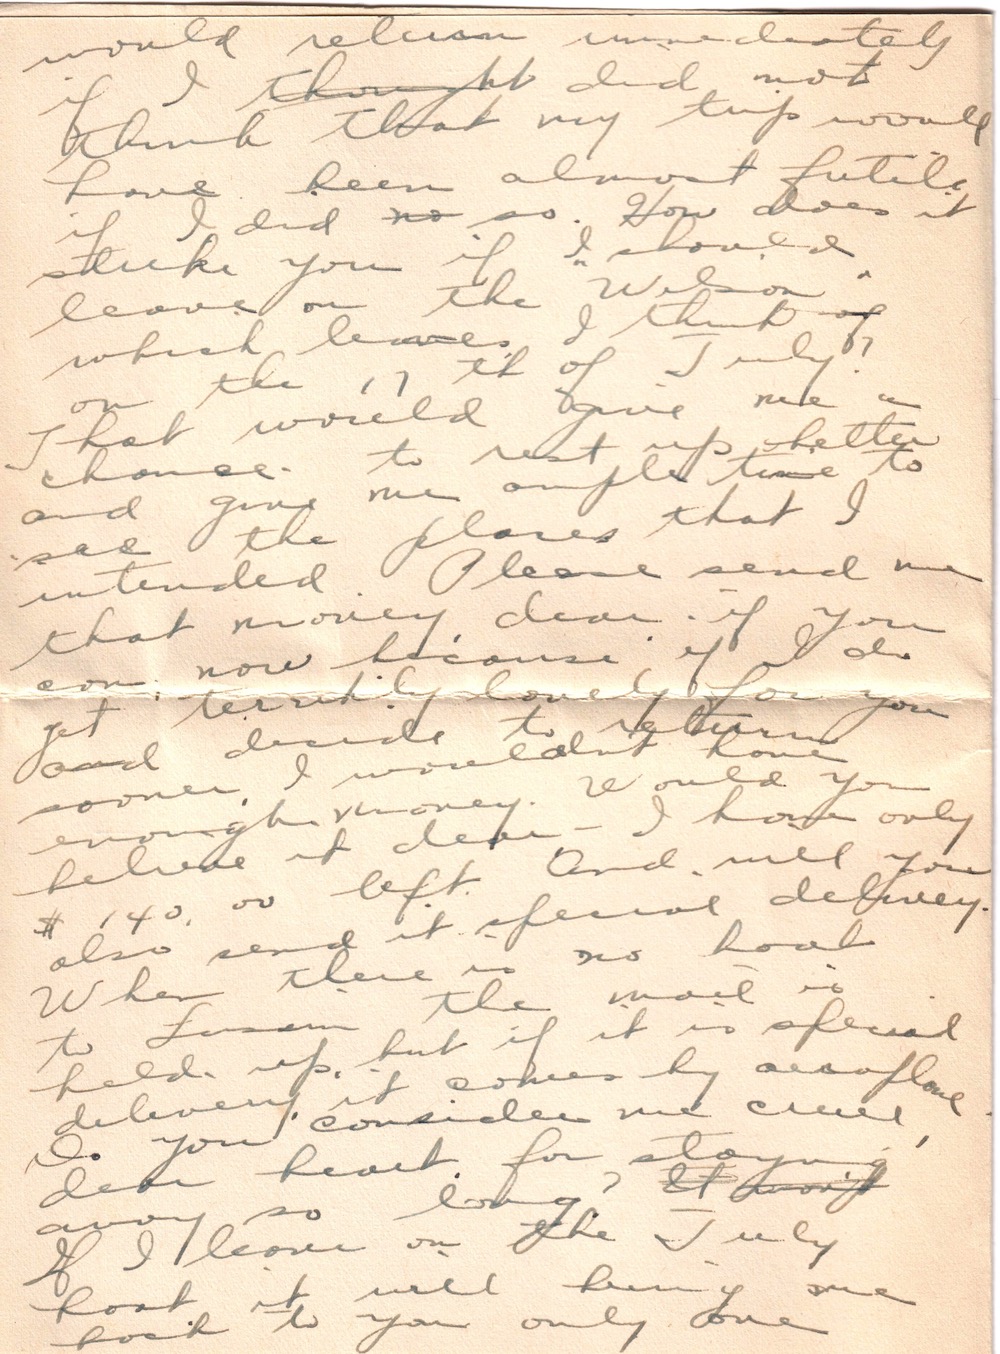 would return immediately
if I thought did not
think that my trip would
have been almost futile
if I did no so. How does it
strike you if I should
leave on the "Wilson"
which leaves I think of
on the 17 th of July?
That would give me a
chance to rest up better
and give me ample time to
see the places that I
intended Please send me
that money dear if you
can now because if I do
get terribly lonely for you
and decide to return
sooner, I wouldn't have
enough money. Would you
believe it dear - I have only
$ 140.00 left. And will you
also send it special delivery.
When there is no boat
to the mail is
held up, but if it is special
delivery, it comes by aeroplane.
Do you consider me cruel,
dear heart, for staying
away so long? It won't
If I leave on the July
boat it will bring me
back to you only one